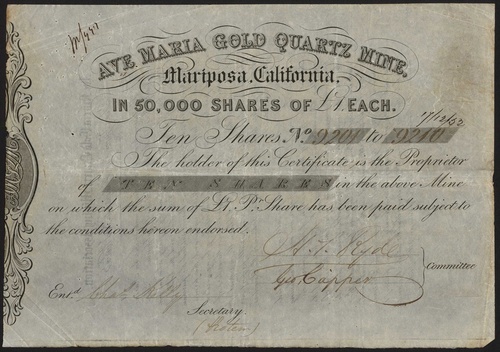 AVE MARIA GOLD QUARTZ MINE,
Mariposa, California,
IN 50,000 SHARES OF £1 EACH.
7/12/52
Ten Shares No 9201 to 9210
The holder of this Certificate is the Proprietor
of TEN SHARES in the above Mine
on which the sum of £1. Pr. Share has been paid subject to
the conditions hereon endorsed.
Geo Capper
Committee
Entd.
Secretary.